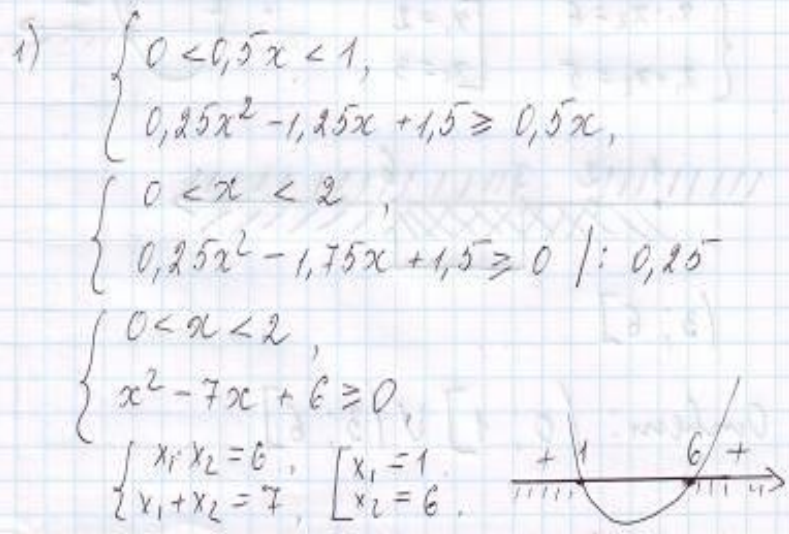 1) { 0 < 0,5x < 1,
0,25x² - 1,25x + 1,5 ≥ 0,5x,
{ 0 < x < 2 ,
0,25x² - 1,75x + 1,5 ≥ 0 / : 0,25
{ 0 < x < 2 ,
x² - 7x + 6 ≥ 0,
{ x₁ · x₂ = 6 , [ x₁ = 1 .
x₁ + x₂ = 7 , x₂ = 6 .
+ 1 6 +